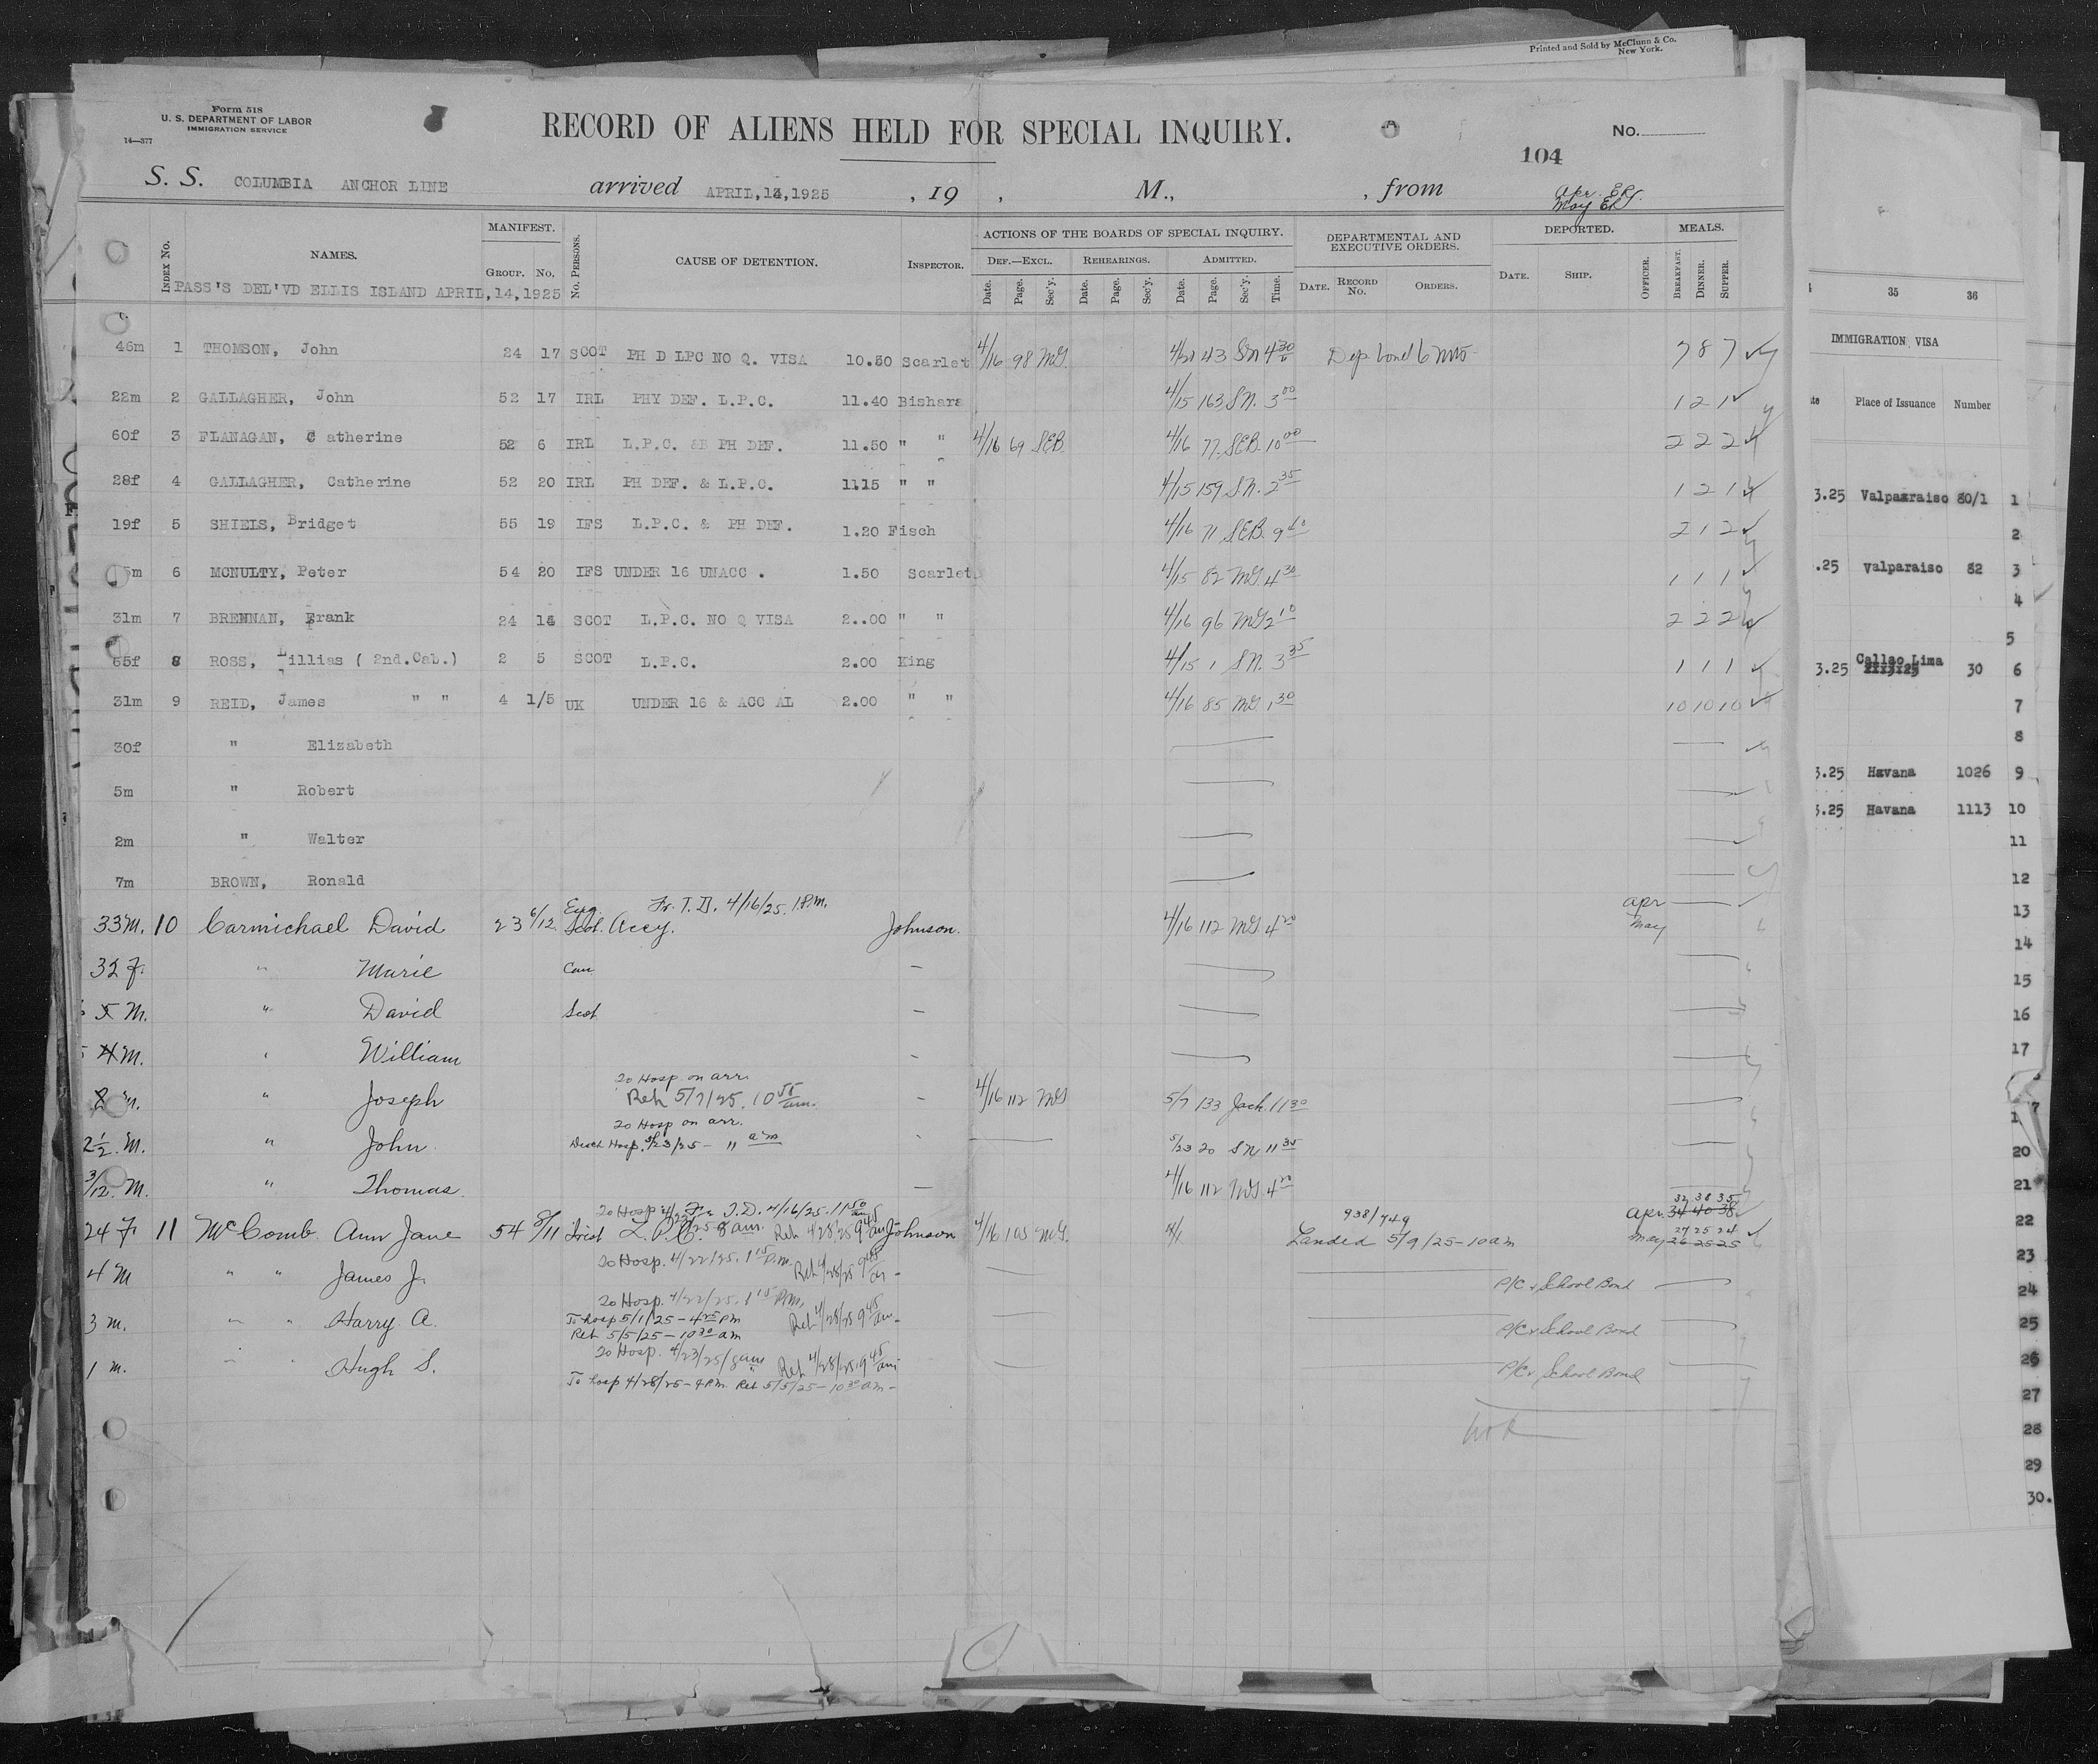 Printed and Sold by McClunn & Co.
New York.
Form 518
U. S. DEPARTMENT OF LABOR
IMMIGRATION SERVICE
14—377
RECORD OF ALIENS HELD FOR SPECIAL INQUIRY.
No.
104
S. S. COLUMBIA ANCHOR LINE arrived APRIL,14,1925 , 19 , M., , from
Apr. ER.
May ER
INDEX No. NAMES. MANIFEST. GROUP. No. No. PERSONS. CAUSE OF DETENTION. INSPECTOR. ACTIONS OF THE BOARDS OF SPECIAL INQUIRY. DEPARTMENTAL AND EXECUTIVE ORDERS. DEPORTED. MEALS.
DEF.—EXCL. REHEARINGS. ADMITTED.
Date. Page. Sec'y. Date. Page. Sec'y. Date. Page. Sec'y. Time. DATE. RECORD No. ORDERS. DATE. SHIP. OFFICER. BREAKFAST. DINNER. SUPPER.
PASS'S DEL'VD ELLIS ISLAND APRIL,14,1925
46m 1 THOMSON, John 24 17 SCOT PH D LPC NO Q. VISA 10.50 Scarlet 4/16 98 MG. 43 SN 4 30 Dep bond 6 mos 7 8 7
22m 2 GALLAGHER, John 52 17 IRL PHY DEF. L.P.C. 11.40 Bishara 4/15 163 SN. 3 00 1 2 1
60f 3 FLANAGAN, Catherine 52 6 IRL L.P.C. &B PH DEF. 11.50 " " 4/16 69 SEB 4/16 77 SEB. 10 00 2 2 2
28f 4 GALLAGHER, Catherine 52 20 IRL PH DEF. & L.P.C. 1115 " " 4/15 159 SN. 2 35 1 2 1
19f 5 SHIELS, Bridget 55 19 IFS L.P.C. & PH DEF. 1.20 Fisch 4/16 71 SEB. 2 1 2
5m 6 MCNULTY, Peter 54 20 IFS UNDER 16 UNACC . 1.50 Scarlet 4/15 82 MG 4 30 1 1 1
31m 7 BRENNAN, Frank 24 14 SCOT L.P.C. NO Q VISA 2..00 " " 4/16 96 MG 2 10 2 2 2
65f 8 ROSS, Lillias ( 2nd.Cab.) 2 5 SCOT L.P.C. 2.00 King 4/15 1 SN. 3 35 1 1 1
31m 9 REID, James " " 4 1/5 UK UNDER 16 & ACC AL 2.00 " " 4/16 85 MG. 1 30 10 10 10
30f " Elizabeth
5m " Robert
2m " Walter
7m BROWN, Ronald
Eng. Fr. T.D. 4/16/25. 1 P.M. apr
33M. 10 Carmichael David 23 6/12 Scot. Accy. Johnson. 4/16 112 MG. 4 20 May
32 f. " Marie Can
5 M. " David Scot
4 M. " William
To Hosp on arr.
2 m. " Joseph Reh 5/7/25. 10 55 am. 4/16 112 MG 5/7 133 Jach. 11 30
To Hosp on arr.
2½ M. " John Disch Hosp. 5/23/25 - 11 am 5/23 20 SN 11 35
3/12 M. " Thomas 4/16 112 MG. 4 20
To Hosp T.D. 4/16/25. 11 50 938/749 apr. 32 38 35 34 40 38
24 f. 11 McComb Ann Jane 54 8/11 Irish L.P.C. 8 am. Reh 4/28/25 9 45 am Johnson 4/16 105 MG. Landed 5/9/25 - 10 am May 27 25 24 26 25 25
To Hosp. 4/22/25. 1 15 P.m.
4 M " " James Jr Reh 4/28/25 9 45 am - P/C & School Bond
To Hosp. 4/22/25. 1 15 P.m.
3 m. " " Harry A. To hosp 5/1/25 - 4 45 PM Reh 4/28/25 9 45 am - P/C & School Bond
Reh 5/5/25 - 10 30 am
To Hosp. 4/23/25/8 am
1 m. " " Hugh S. Reh 4/28/25. 9 45 am P/C & School Bond
To hosp 4/28/25 - 4 PM. Reh 5/5/25 - 10 30 am -
35 36
IMMIGRATION VISA
Place of Issuance Number
3.25 Valparaiso 80/1 1
2
.25 Valparaiso 82 3
4
5
3.25 Callao Lima 30 6
7
8
3.25 Havana 1026 9
3.25 Havana 1113 10
11
12
13
14
15
16
17
20
21
22
23
24
25
26
27
28
29
30.